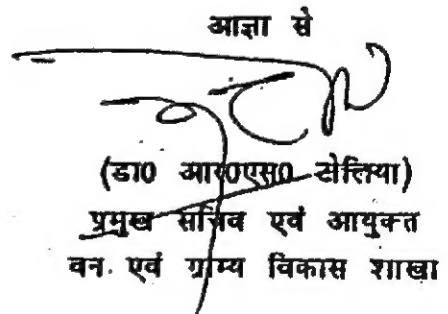 आज्ञा से
(डा0 आर0एस0 टोलिया)
प्रमुख सचिव एवं आयुक्त
वन एवं ग्राम्य विकास शाखा